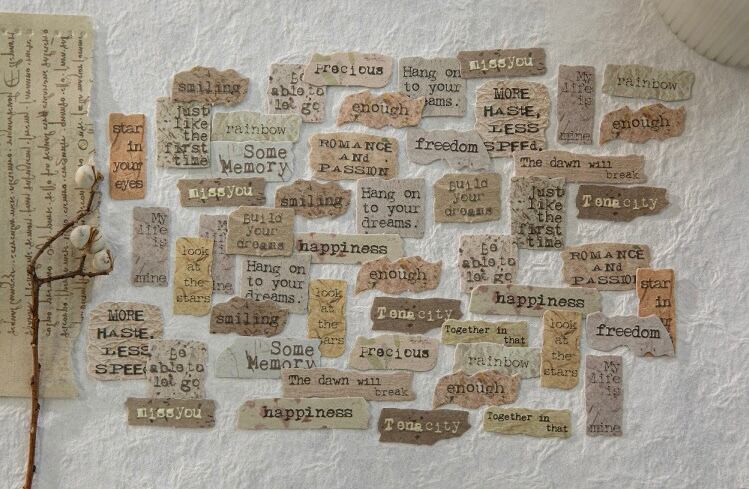 smiling
Be
able to
let go
Precious
Hang on
to your
dreams.
missyou
MORE
HASTE,
LESS
SPEED.
My
life
is
mine
rainbow
star
in
your
eyes
just
like
the
first
time
rainbow
enough
enough
Some
Memory
ROMANCE
AND
PASSION
freedom
The dawn will
break
missyou
smiling
Hang on
to your
dreams.
Build
your
dreams
just
like
the
first
time
Tenacity
My
life
is
mine
My
life
is
Build
your
dreams
happiness
look
at
the
stars
Hang on
to your
dreams.
enough
Be
able to
let go
ROMANCE
AND
PASSION
star
in
MORE
HASTE,
LESS
SPEED
smiling
look
at
the
stars
Tenacity
happiness
Together in
that
look
at
the
stars
freedom
Be
able to
let go
Some
Memory
Precious
rainbow
My
life
is
mine
The dawn will
break
enough
missyou
happiness
Tenacity
Together in
that